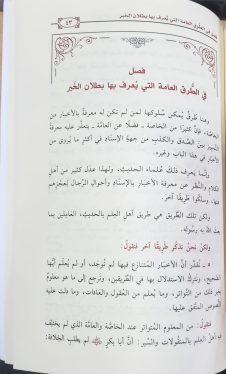 فصل في الطرق العامة التي يُعرف بها بطلان الخبر
٤٣
فصل
في الطُّرق العامة التي يُعرف بها بطلان الخَبر
وهنا طُرقٌ يُمكن سُلوكها لمن لم تكن له معرفةٌ بالأخبار من
الخاصة، فإنَّ كثيرًا من الخاصة ـ فضلًا عن العامَّة ـ يتعذَّر عليه معرفةُ
التمييز بين الصِّدق والكذب من جهةِ الإسنادِ في أكثر ما يُروى من
الأخبار في هذا الباب وغيره.
وإنَّما يعرفُ ذلك عُلماء الحديث، ولهذا عدَل كثير من أهل
الكلام والنَّظر عن معرفة الأخبار بالإسنادِ وأحوالِ الرِّجال لعجزهم
عنها، وسلكوا طريقًا آخر.
ولكن تلك الطَّريق هي طريق أهل العِلم بالحديثِ، العالمين بما
بعث الله به رسوله.
ولكن نحن نذكر طريقًا آخر فنقولُ:
نُقدِّر أنَّ الأخبارَ المُتنازع فيها لم تُوجد، أو لم يُعلم أيُّها
الصحيح، ونتركُ الاستدلال بها في الطَّرفين، ونرجع إلى ما هو معلومٌ
بغير ذلك من التَّواتر، وما يُعلم من العُقول والعَادات، وما دلت عليه
النُّصوص المتَّفق عليها.
فنقولُ: من المعلوم المُتواتر عند الخاصَّة والعامَّة الذي لم يختلِف
فيه أهلُ العِلم بالمنقولات والسِّيَر: أنَّ أبا بكرٍ لم يطلب الخِلافةَ؛